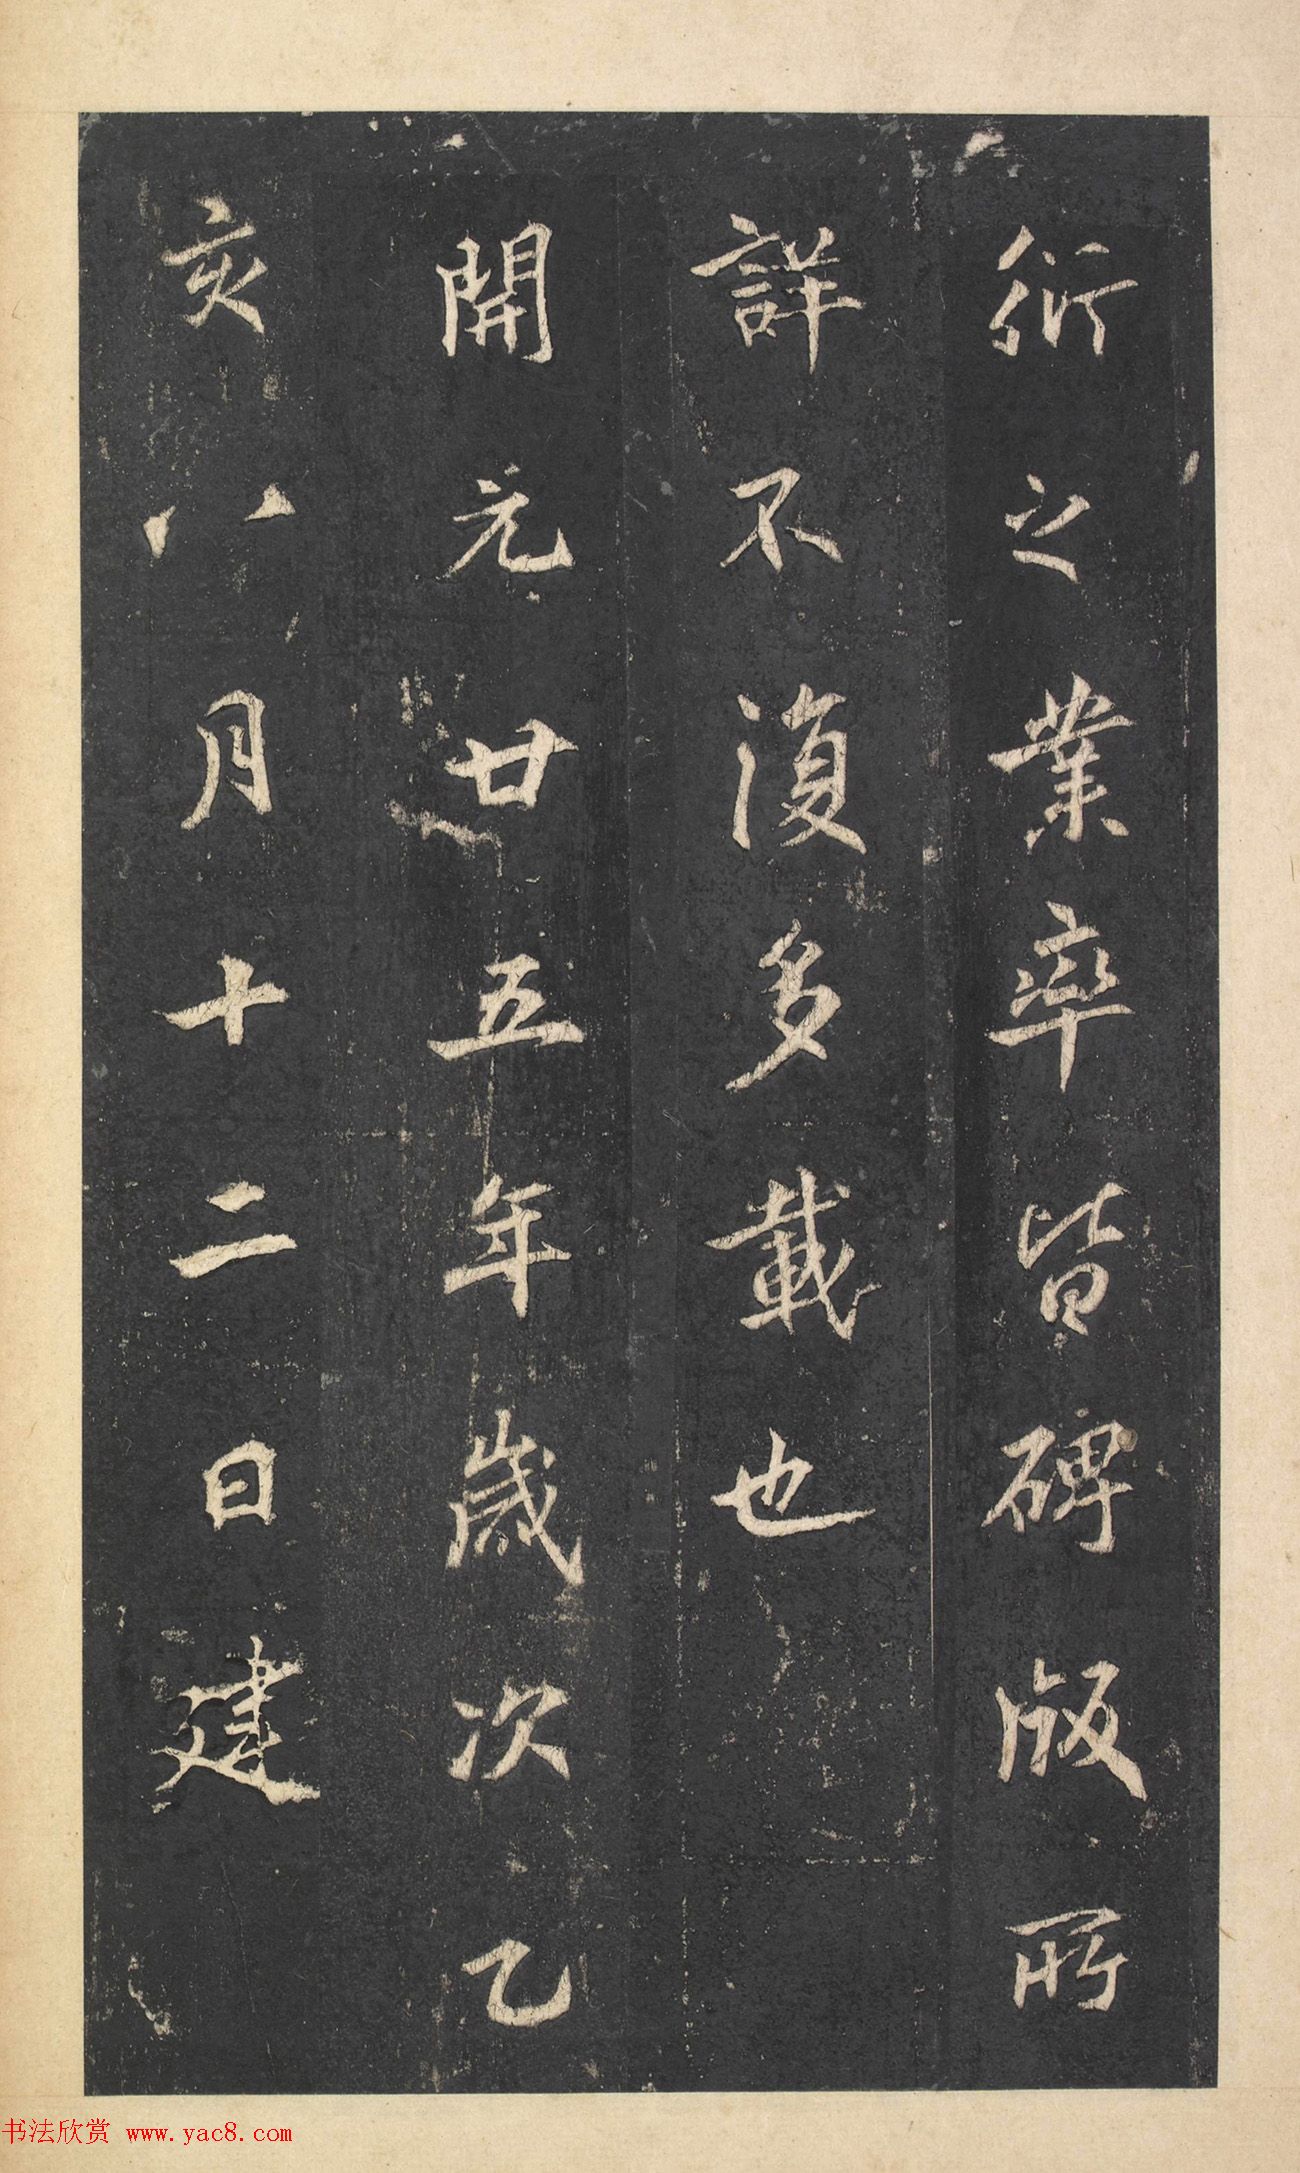 衍之業率皆碑版所
詳不復多載也
開元廿五年歲次乙
亥八月十二日建
书法欣赏 www.yac8.com